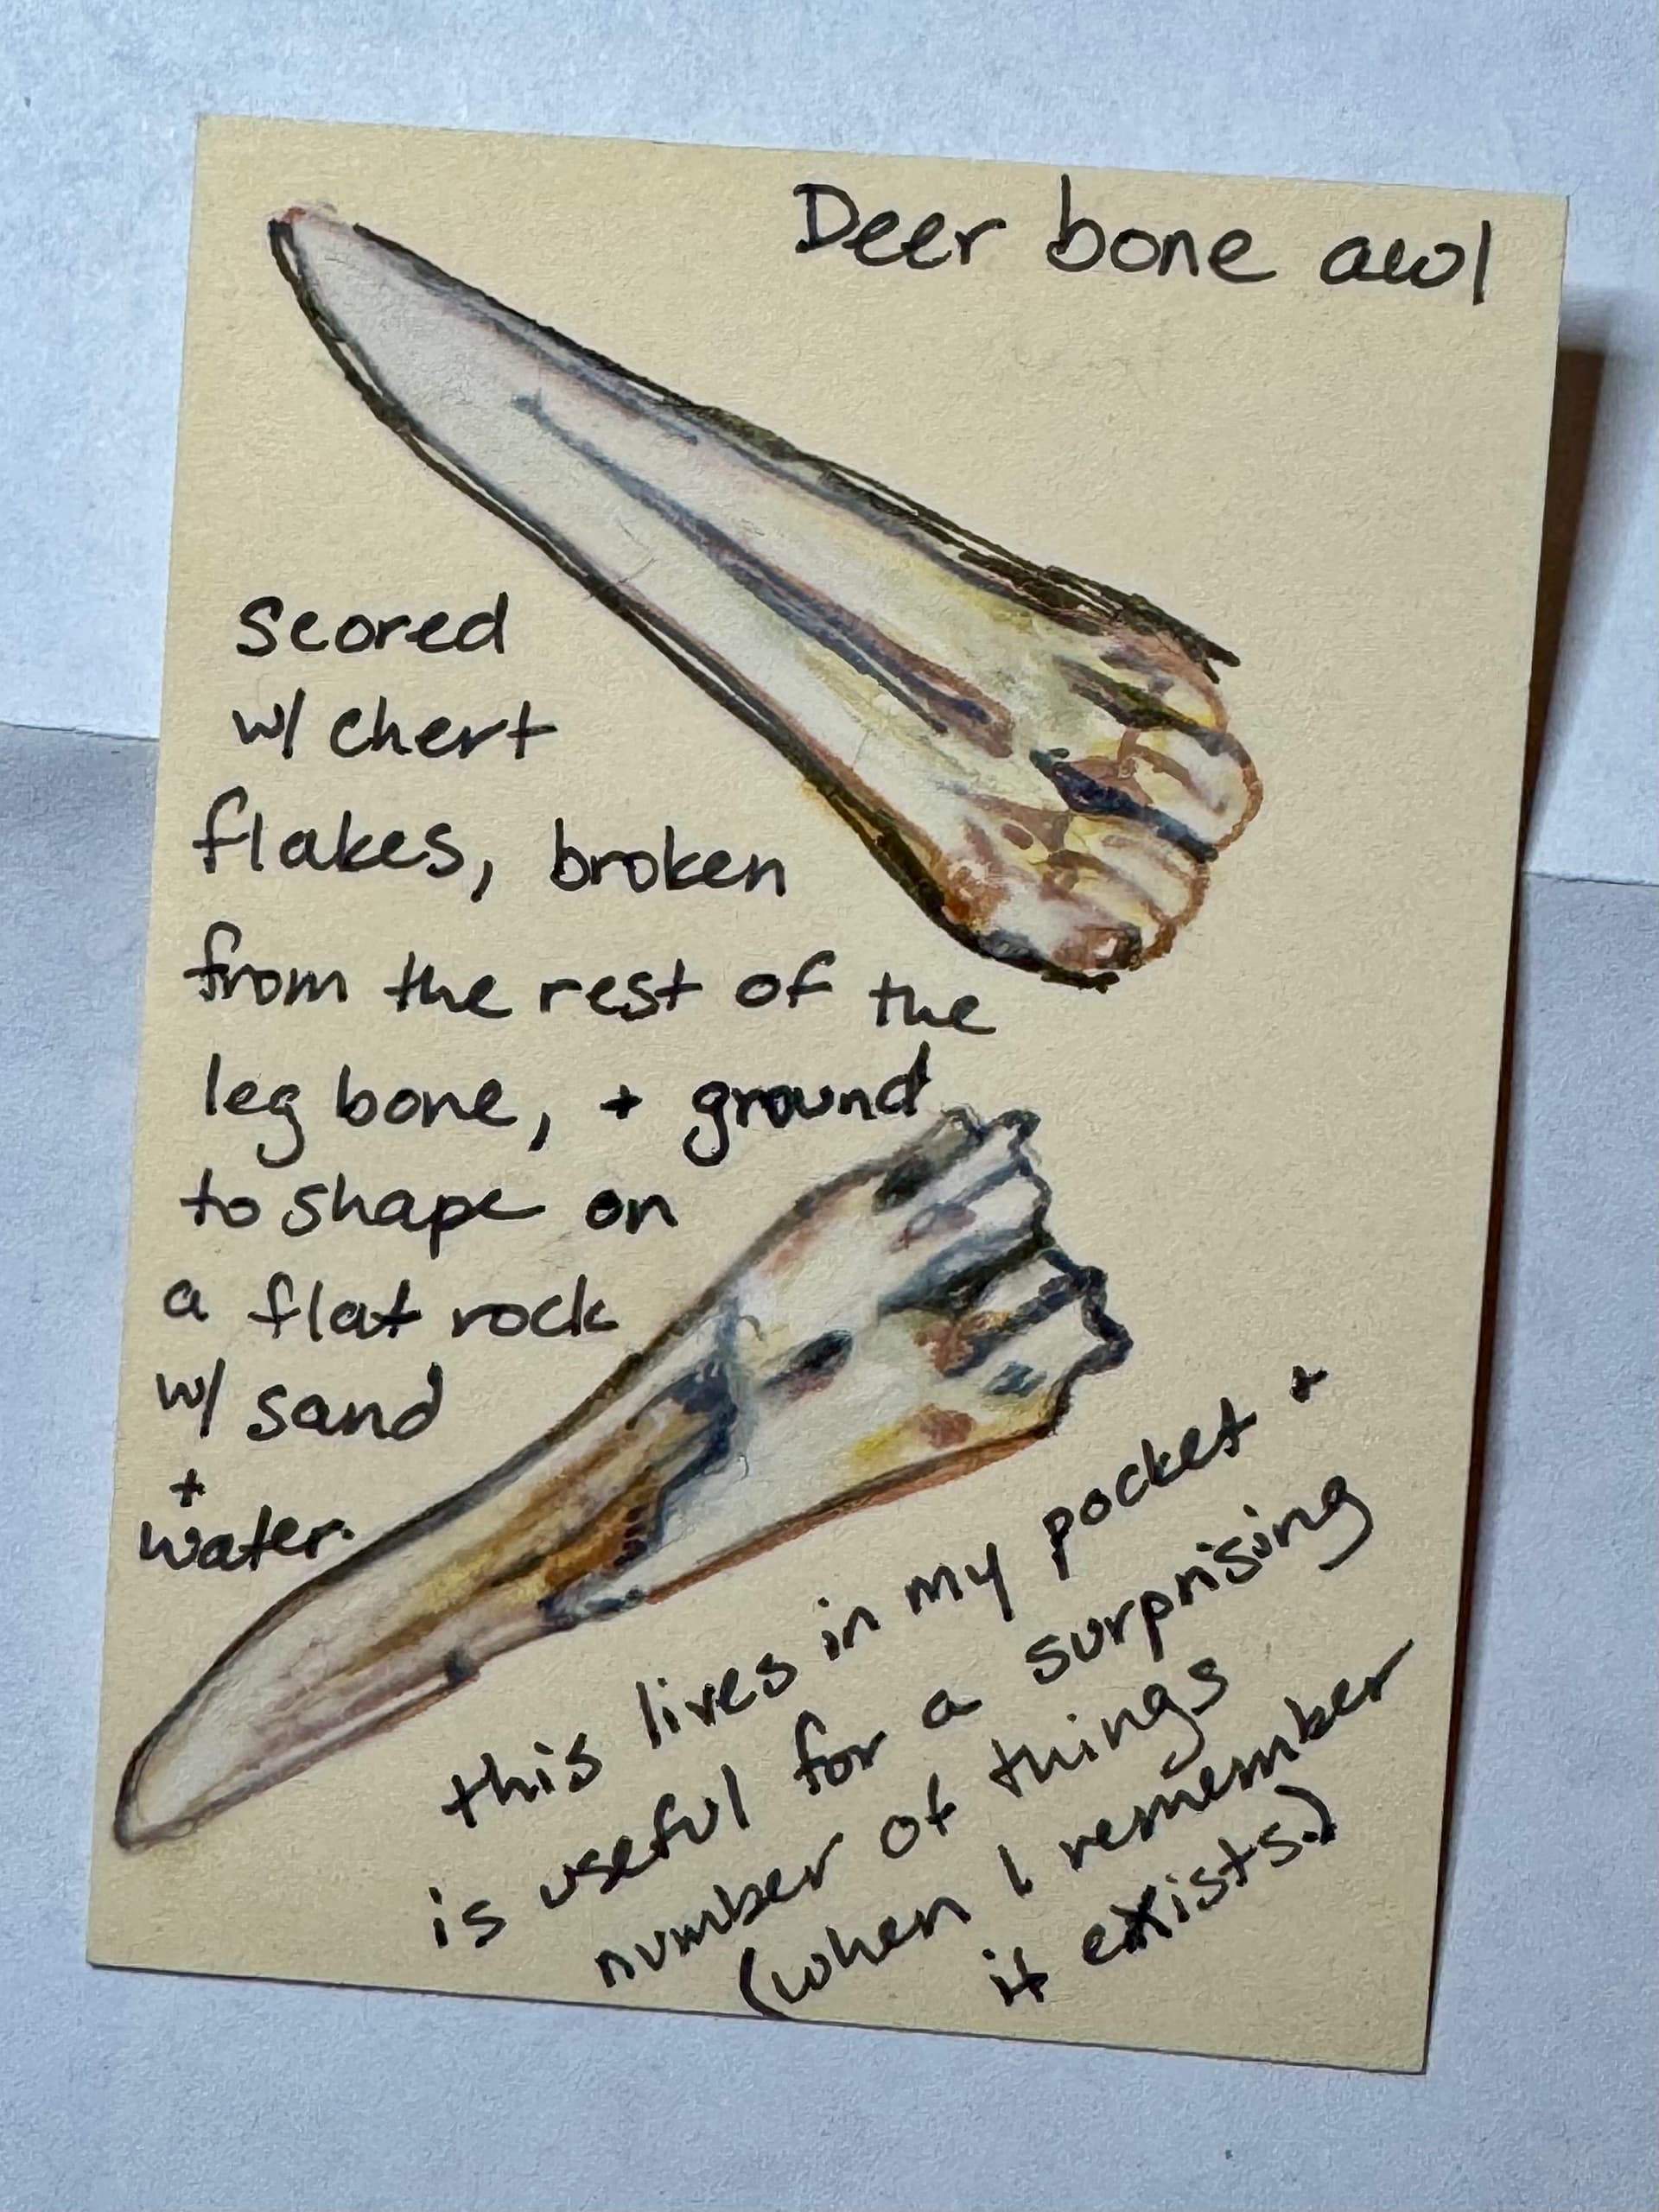 Deer bone awl
scored
w/ chert
flakes, broken
from the rest of the
leg bone, + ground
to shape on
a flat rock
w/ sand
+
water.
this lives in my pocket +
is useful for a surprising
number of things
(when I remember
it exists.)